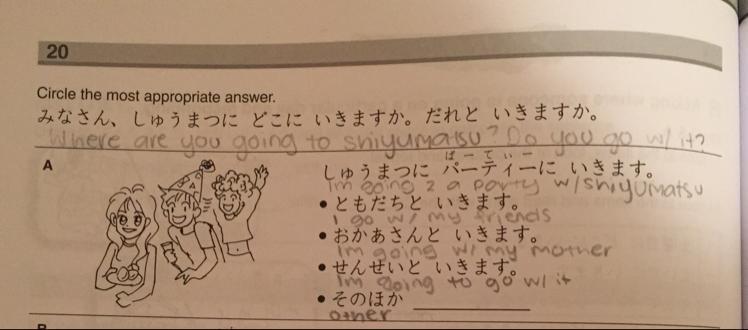 20
Circle the most appropriate answer.
みなさん、しゅうまつに どこに いきますか。だれと いきますか。
Where are you going to shiyumatsu? Do you go w/ it?
A
ぱーてぃー
しゅうまつに パーティーに いきます。
Im going 2 a party w/shiyumatsu
• ともだちと いきます。
I go w/ my friends
• おかあさんと いきます。
Im going w/ my mother
• せんせいと いきます。
Im going to go w/ it
• そのほか
other